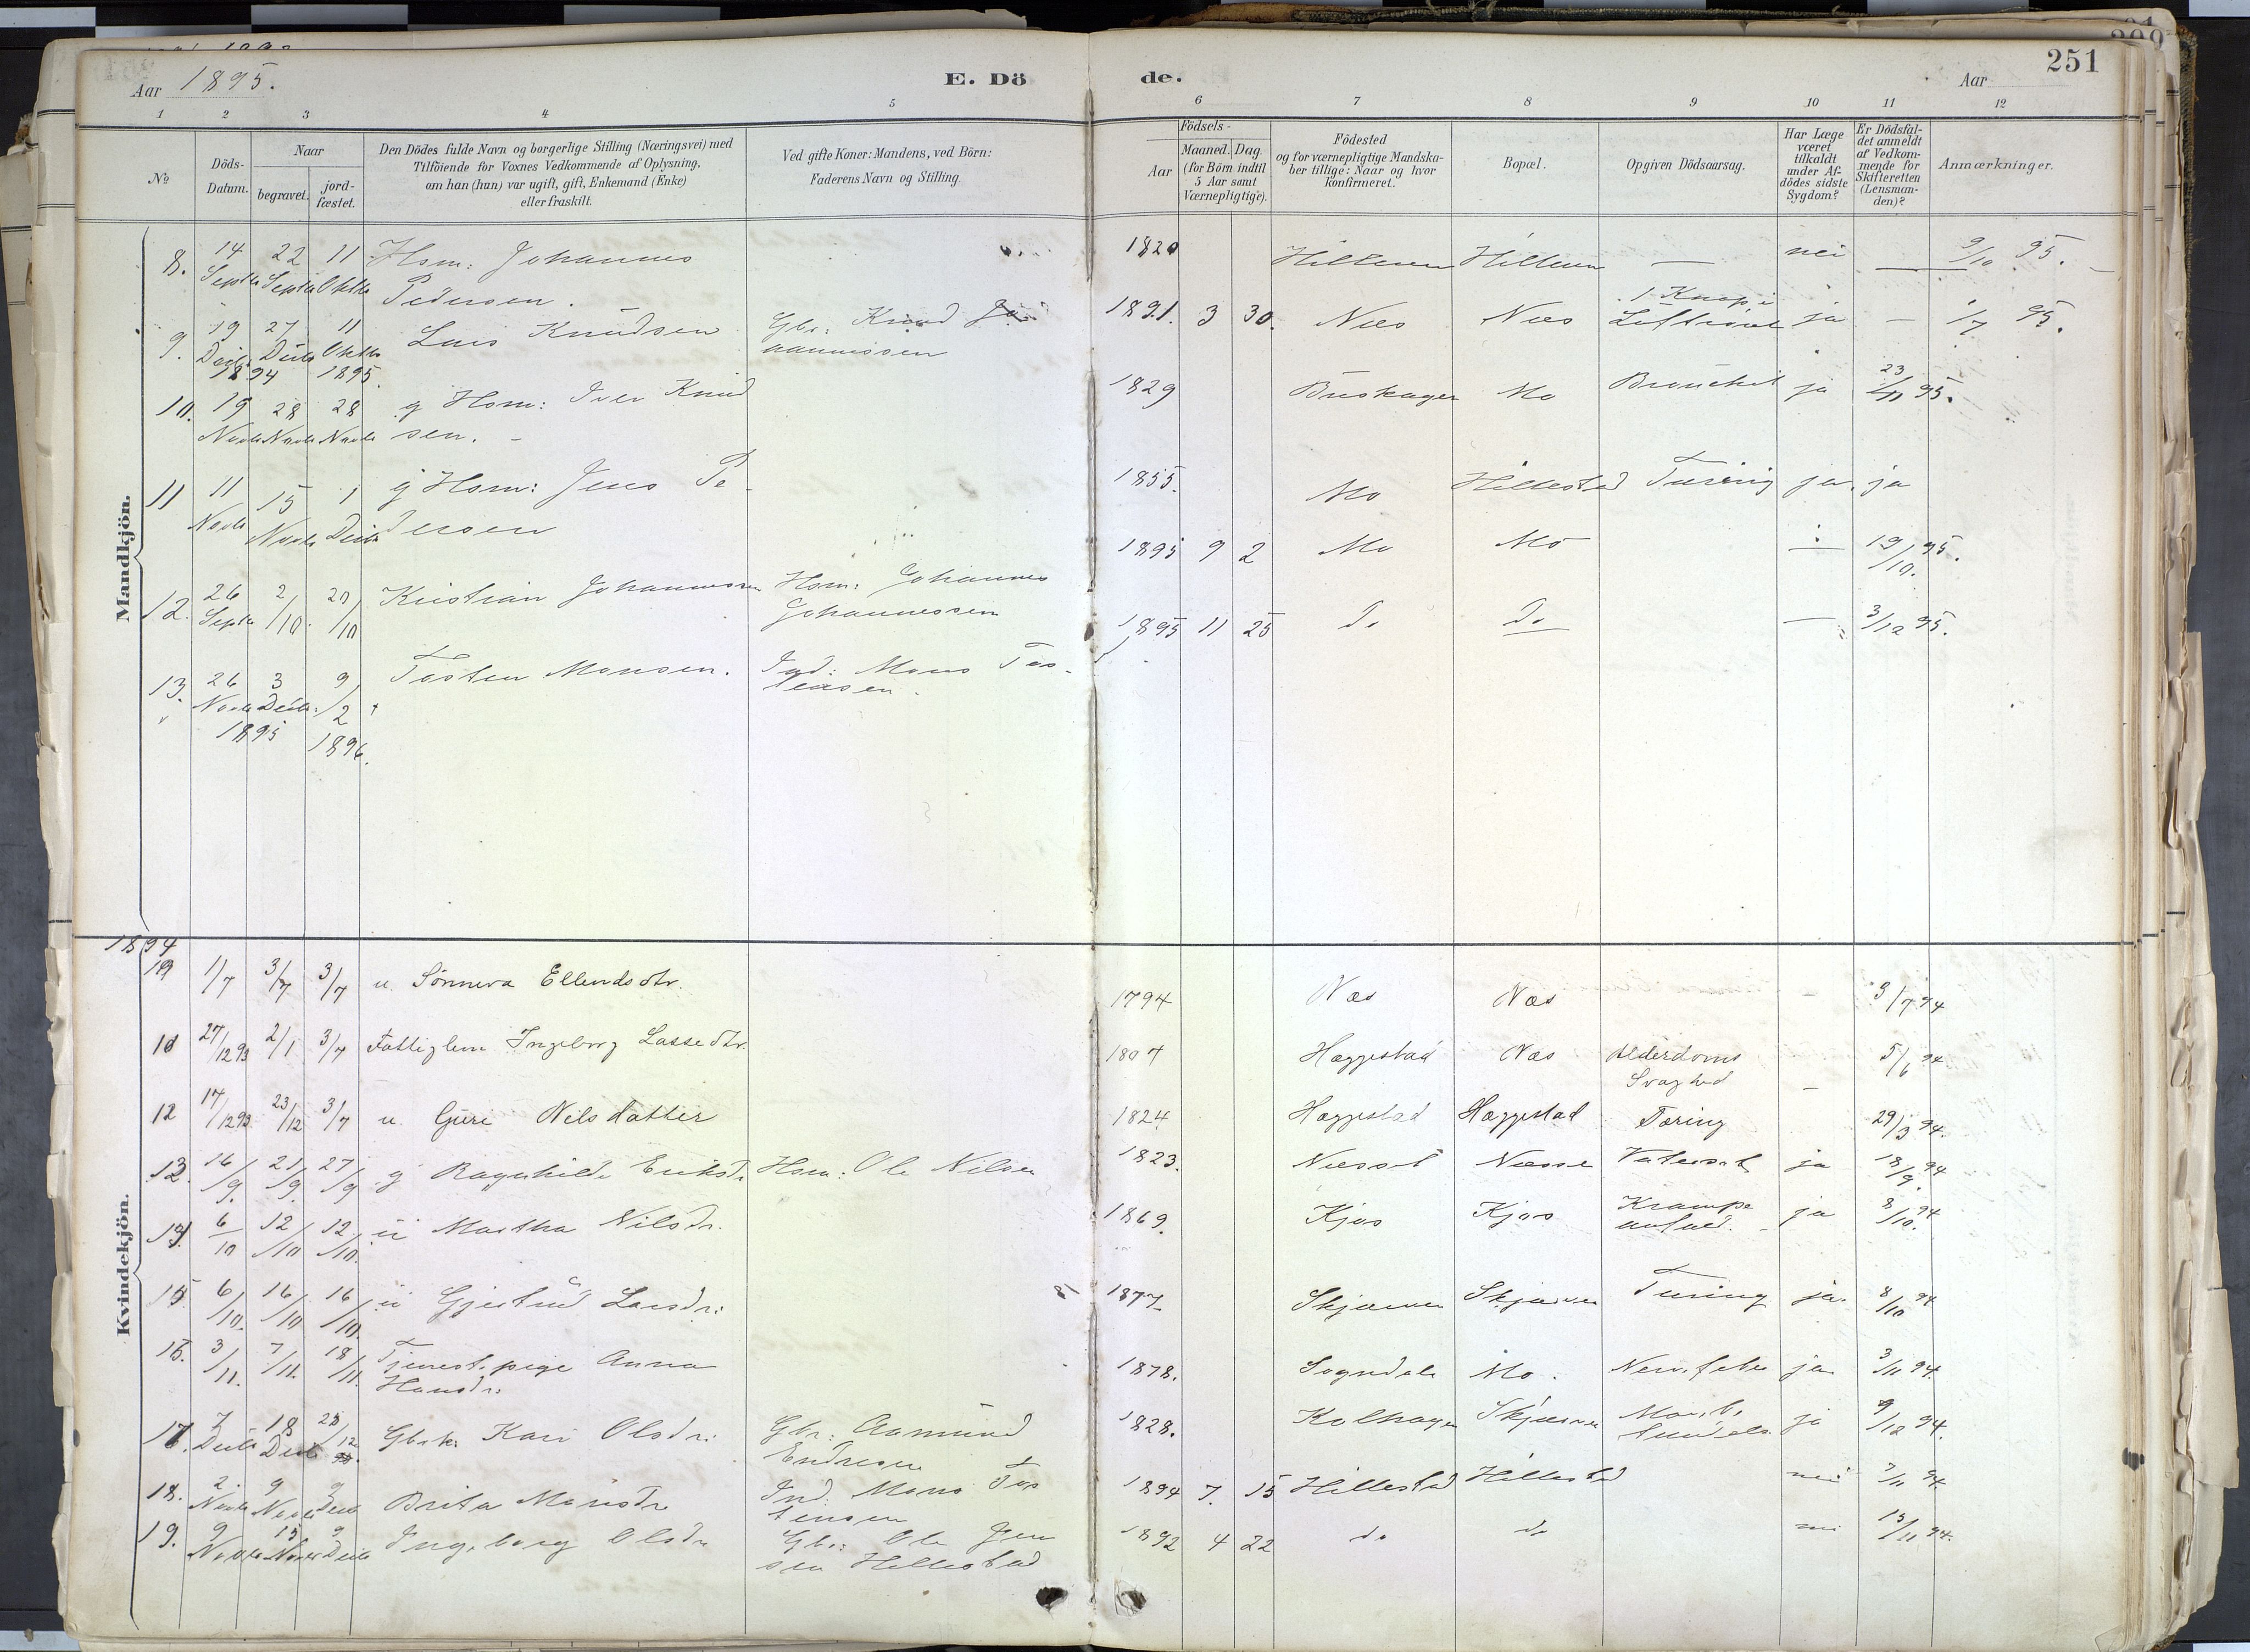 Aar 1895.
E. Dö
de.
251
Aar
1 2 3 4 5 6 7 8 9 10 11 12
No
Döds-
Datum.
Naar
begravet.
jord-
fæstet.
Den Dödes fulde Navn og borgerlige Stilling (Næringsvei) med
Tilföiende for Voxnes Vedkommende af Oplysning,
om han (hun) var ugift, gift, Enkemand (Enke)
eller fraskilt.
Ved gifte Koner: Mandens, ved Börn:
Faderens Navn og Stilling.
Födsels-
Aar
Maaned. Dag.
(for Börn indtil
5 Aar samt
Værnepligtige).
Födested
og for værnepligtige Mandska-
ber tillige: Naar og hvor
konfirmeret.
Bopæl.
Opgiven Dödsaarsag.
Har Læge
været
tilkaldt
under Af-
dödes sidste
Sygdom?
Er Dödsfal-
det anmeldt
af Vedkom-
mende for
Skifteretten
(Lensman-
den)?
Anmærkninger.
Mandkjön.
8. 14 22 11 Hsm: Johannes 1820 nei 9/10 95.
Septb Septb Oktb Pedersen.
9. 19 27 11 Lars Knudsen Gbr: Knud 1891. 3 30. Næs Næs ja 1/7 95.
Decb Decb Oktb
1894 1895.
10. 19 28 28 g Hsm: Iver Knud 1829 Mo ja 23/11 95.
Novb Novb Novb sen.
11 11 15 1 g Hsm: Jens Pe- 1855. Mo Hillestad Tæring ja ja
Novb Novb Decb dersen
12. 26 2/10 20/10 Kristian Johannessen Hsm: Johannes 1895 9 2 Mo Mo 19/10. 95.
Septb Johannessen
13. 26 3 9/2 Tosten Monsen. Ind: Mons Tos- 1895 11 25 do do 3/12 95.
Novb Decb tensen.
1895 1896.
Kvindekjön.
1894
10 1/7 3/7 3/7 u Sönneva Ellendsdtr. 1794 Næs Næs 3/7 94
27/12 93 2/1 3/7 Fattiglem Ingeborg Lassedtr. 1807 Haggestad Næs Alderdoms 5/6 94
Svaghed
12 17/12 93 23/12 3/7 u Guri Nilsdatter 1824 Haggestad Haggestad Tæring 29/3 94.
13. 16/9. 21/9. 27/9 g Ragnhilde Eriksdr Hsm: Ole Nilsen 1823. Næsset Næsse Vatersot ja 18/9. 94
14. 6/10 12/10 12/10. u Martha Nilsdr. 1869. Kjos Kjos Krampe ja 8/10. 94
anfald.
15 6/10. 16/10 16/10. u Gjertrud Larsdr: 1877 Tæring ja 8/10 94
16. 3/11. 7/11. 18/11. Tjenestepige Anna 1878. Sogndale Mo. Nervfeber ja 3/11 94.
Hansdr:
17. 7 18 Gbrk: Kari Olsdr: Gbr: Aamund 1828. Kolhagen ja 9/12 94.
Decb Decb Endresen
18. 2. 9 9 Brita Monsdr Ind: Mons Tos 1894 7. 15 Hillestad Hillestad nei 7/11 94.
Novb Novb Decb tensen
19. 9 15 9 Ingeborg Olsdr Gbr: Ole Jen 1892 4 22 do do nei 15/11 94.
Novb Novb Decb sen Hillestad